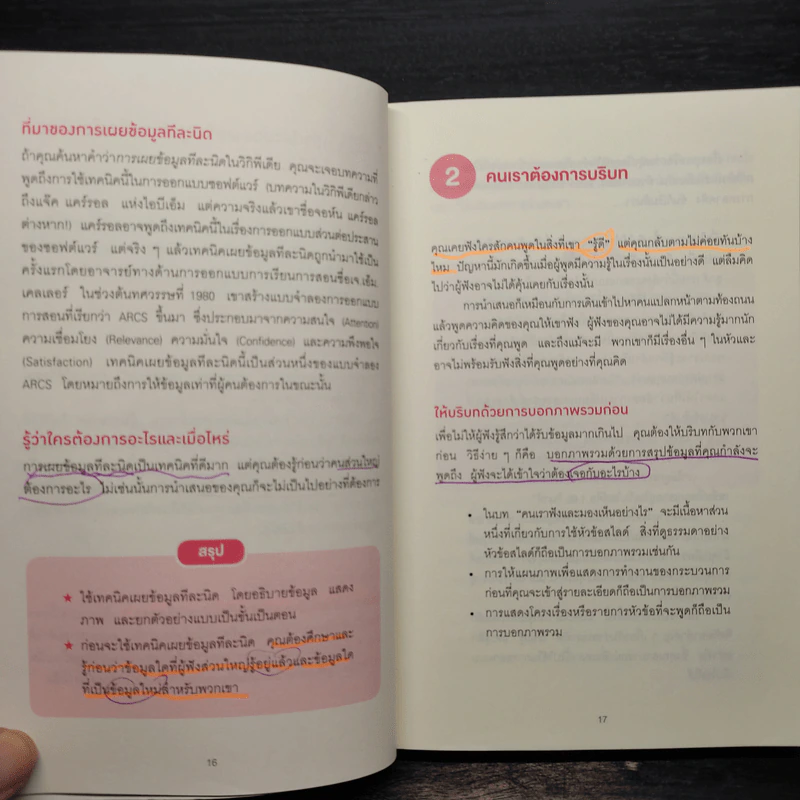 ที่มาของการเผยข้อมูลทีละนิด
ถ้าคุณค้นหาคำว่าการเผยข้อมูลทีละนิดในวิกิพีเดีย คุณจะเจอบทความที่
พูดถึงการใช้เทคนิคนี้ในการออกแบบซอฟต์แวร์ (บทความในวิกิพีเดียกล่าว
ถึงแจ็ค แคร์รอล แห่งไอบีเอ็ม แต่ความจริงแล้วเขาชื่อจอห์น แคร์รอล
ต่างหาก!) แคร์รอลอาจพูดถึงเทคนิคนี้ในเรื่องการออกแบบส่วนต่อประสาน
ของซอฟต์แวร์ แต่จริง ๆ แล้วเทคนิคเผยข้อมูลทีละนิดถูกนำมาใช้เป็น
ครั้งแรกโดยอาจารย์ทางด้านการออกแบบการเรียนการสอนชื่อเจ.เอ็ม.
เคลเลอร์ ในช่วงต้นทศวรรษที่ 1980 เขาสร้างแบบจำลองการออกแบบ
การสอนที่เรียกว่า ARCS ขึ้นมา ซึ่งประกอบมาจากความสนใจ (Attention)
ความเชื่อมโยง (Relevance) ความมั่นใจ (Confidence) และความพึงพอใจ
(Satisfaction) เทคนิคเผยข้อมูลทีละนิดนี้เป็นส่วนหนึ่งของแบบจำลอง
ARCS โดยหมายถึงการให้ข้อมูลเท่าที่ผู้คนต้องการในขณะนั้น
รู้ว่าใครต้องการอะไรและเมื่อไหร่
การเผยข้อมูลทีละนิดเป็นเทคนิคที่ดีมาก แต่คุณต้องรู้ก่อนว่าคนส่วนใหญ่
ต้องการอะไร ไม่เช่นนั้นการนำเสนอของคุณก็จะไม่เป็นไปอย่างที่ต้องการ
สรุป
★ ใช้เทคนิคเผยข้อมูลทีละนิด โดยอธิบายข้อมูล แสดง
ภาพ และยกตัวอย่างแบบเป็นขั้นเป็นตอน
★ ก่อนจะใช้เทคนิคเผยข้อมูลทีละนิด คุณต้องศึกษาและ
รู้ก่อนว่าข้อมูลใดที่ผู้ฟังส่วนใหญ่รู้อยู่แล้วและข้อมูลใด
ที่เป็นข้อมูลใหม่สำหรับพวกเขา
16
2 คนเราต้องการบริบท
คุณเคยฟังใครสักคนพูดในสิ่งที่เขา “รู้ดี” แต่คุณกลับตามไม่ค่อยทันบ้าง
ไหม ปัญหานี้มักเกิดขึ้นเมื่อผู้พูดมีความรู้ในเรื่องนั้นเป็นอย่างดี แต่ลืมคิด
ไปว่าผู้ฟังอาจไม่ได้คุ้นเคยกับเรื่องนั้น
การนำเสนอก็เหมือนกับการเดินเข้าไปหาคนแปลกหน้าตามท้องถนน
แล้วพูดความคิดของคุณให้เขาฟัง ผู้ฟังของคุณอาจไม่ได้มีความรู้มากนัก
เกี่ยวกับเรื่องที่คุณพูด และถึงแม้จะมี พวกเขาก็มีเรื่องอื่น ๆ ในหัวและ
อาจไม่พร้อมรับฟังสิ่งที่คุณพูดอย่างที่คุณคิด
ให้บริบทด้วยการบอกภาพรวมก่อน
เพื่อไม่ให้ผู้ฟังรู้สึกว่าได้รับข้อมูลมากเกินไป คุณต้องให้บริบทกับพวกเขา
ก่อน วิธีง่าย ๆ ก็คือ บอกภาพรวมด้วยการสรุปข้อมูลที่คุณกำลังจะ
พูดถึง ผู้ฟังจะได้เข้าใจว่าต้องเจอกับอะไรบ้าง
• ในบท “คนเราฟังและมองเห็นอย่างไร” จะมีเนื้อหาส่วน
หนึ่งที่เกี่ยวกับการใช้หัวข้อสไลด์ สิ่งที่ดูธรรมดาอย่าง
หัวข้อสไลด์ก็ถือเป็นการบอกภาพรวมเช่นกัน
• การให้แผนภาพเพื่อแสดงการทำงานของกระบวนการ
ก่อนที่คุณจะเข้าสู่รายละเอียดก็ถือเป็นการบอกภาพรวม
• การแสดงโครงเรื่องหรือรายการหัวข้อที่จะพูดก็ถือเป็น
การบอกภาพรวม
17